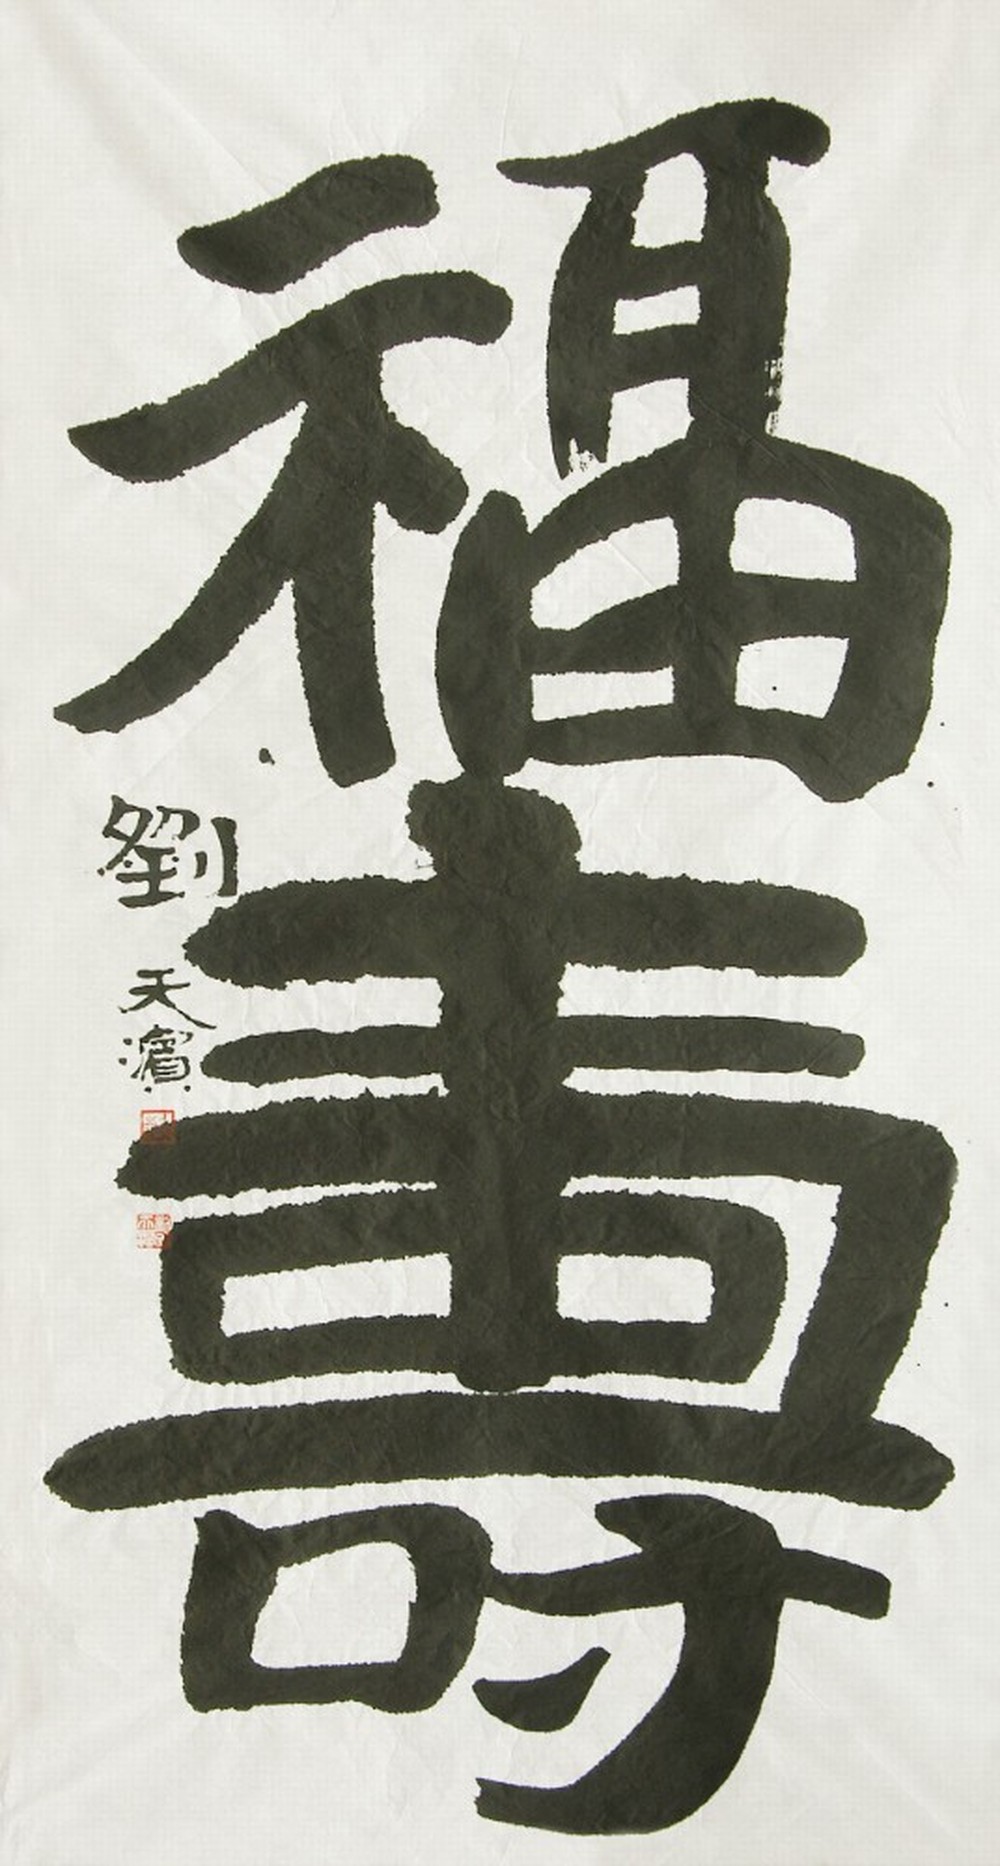 福壽
劉天濱